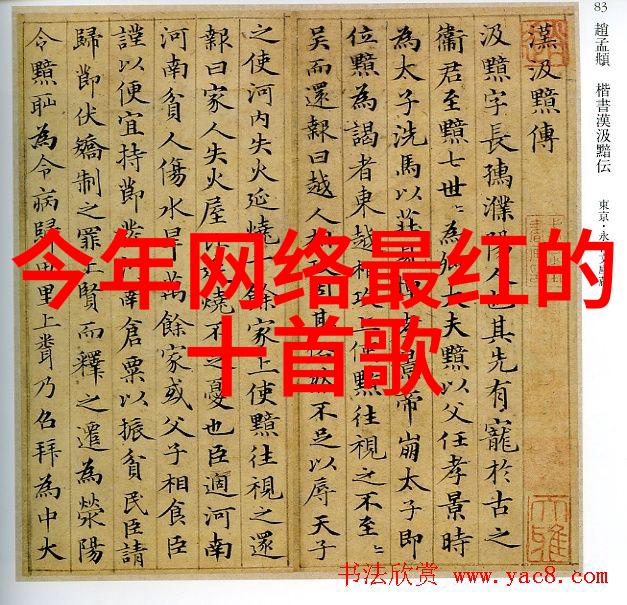 83
趙孟頫 楷書漢汲黯伝 東京・永青文庫蔵
漢汲黯傳
汲黯字長孺濮陽人也其先有寵於古之
衛君至黯七世〻為卿大夫黯以父任孝景時
為太子洗馬以莊見憚孝景帝崩太子即
位黯為謁者東越相攻上使黯往視之不至〻
吳而還報曰越人相攻固其俗然不足以辱天子
之使河内失火延燒千餘家上使黯往視之還
報曰家人失火屋比延燒不足憂也臣過河南
河南貧人傷水旱萬餘家或父子相食臣
謹以便宜持節發河南倉粟以振貧民臣請
歸節伏矯制之罪上賢而釋之遷為滎陽
令黯恥為令病歸田里上聞乃召拜為中大
今年网络最红的
十首歌
书法欣赏 www.yac8.com